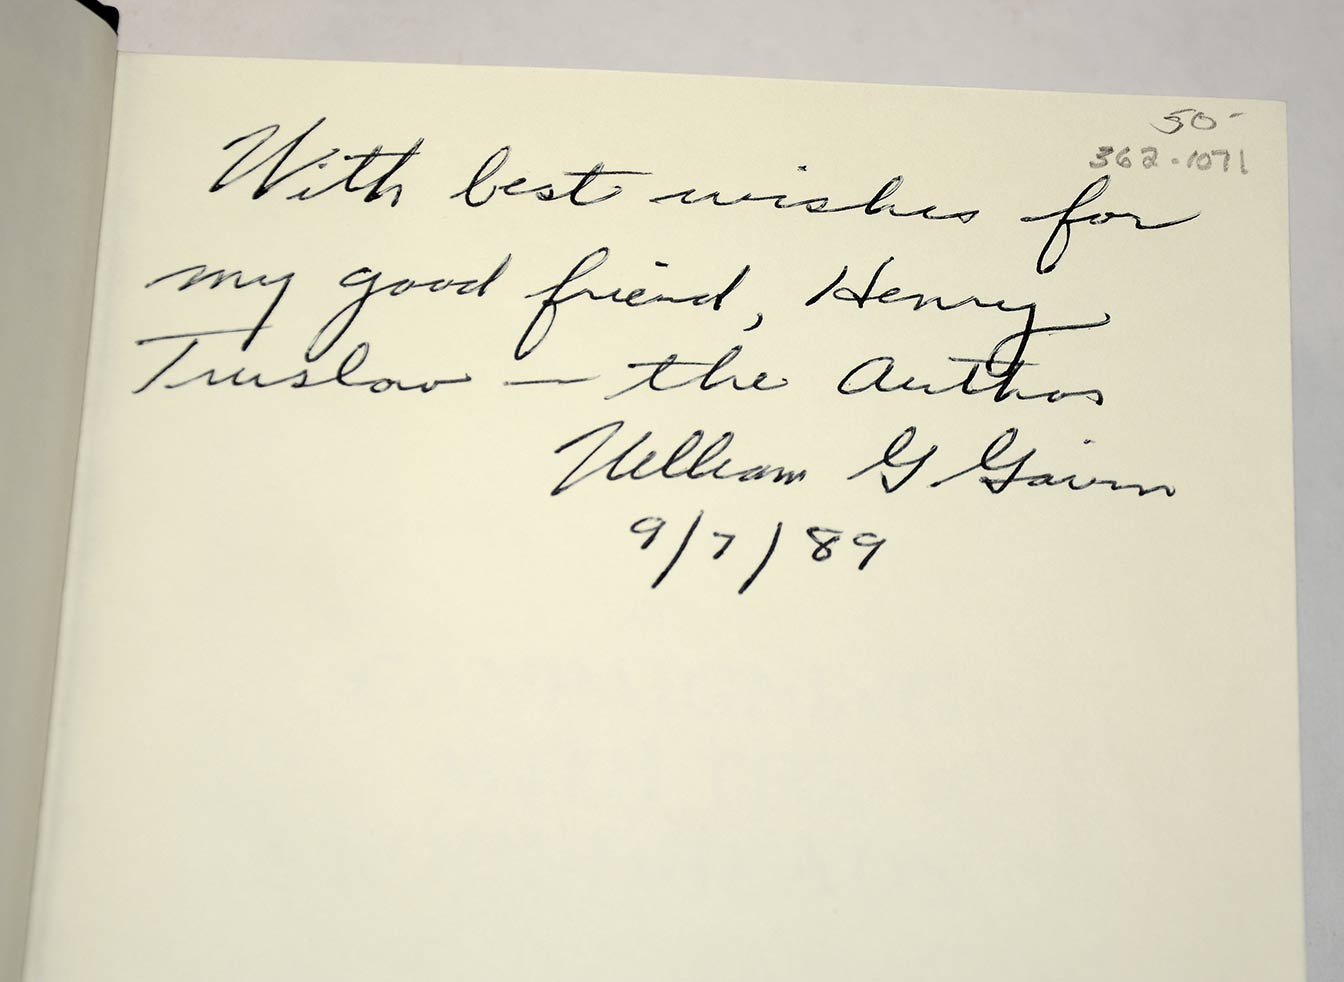 50-
362-1071
With best wishes for
my good friend, Henry
Truslow — the Author
William G Gavin
9/7/89